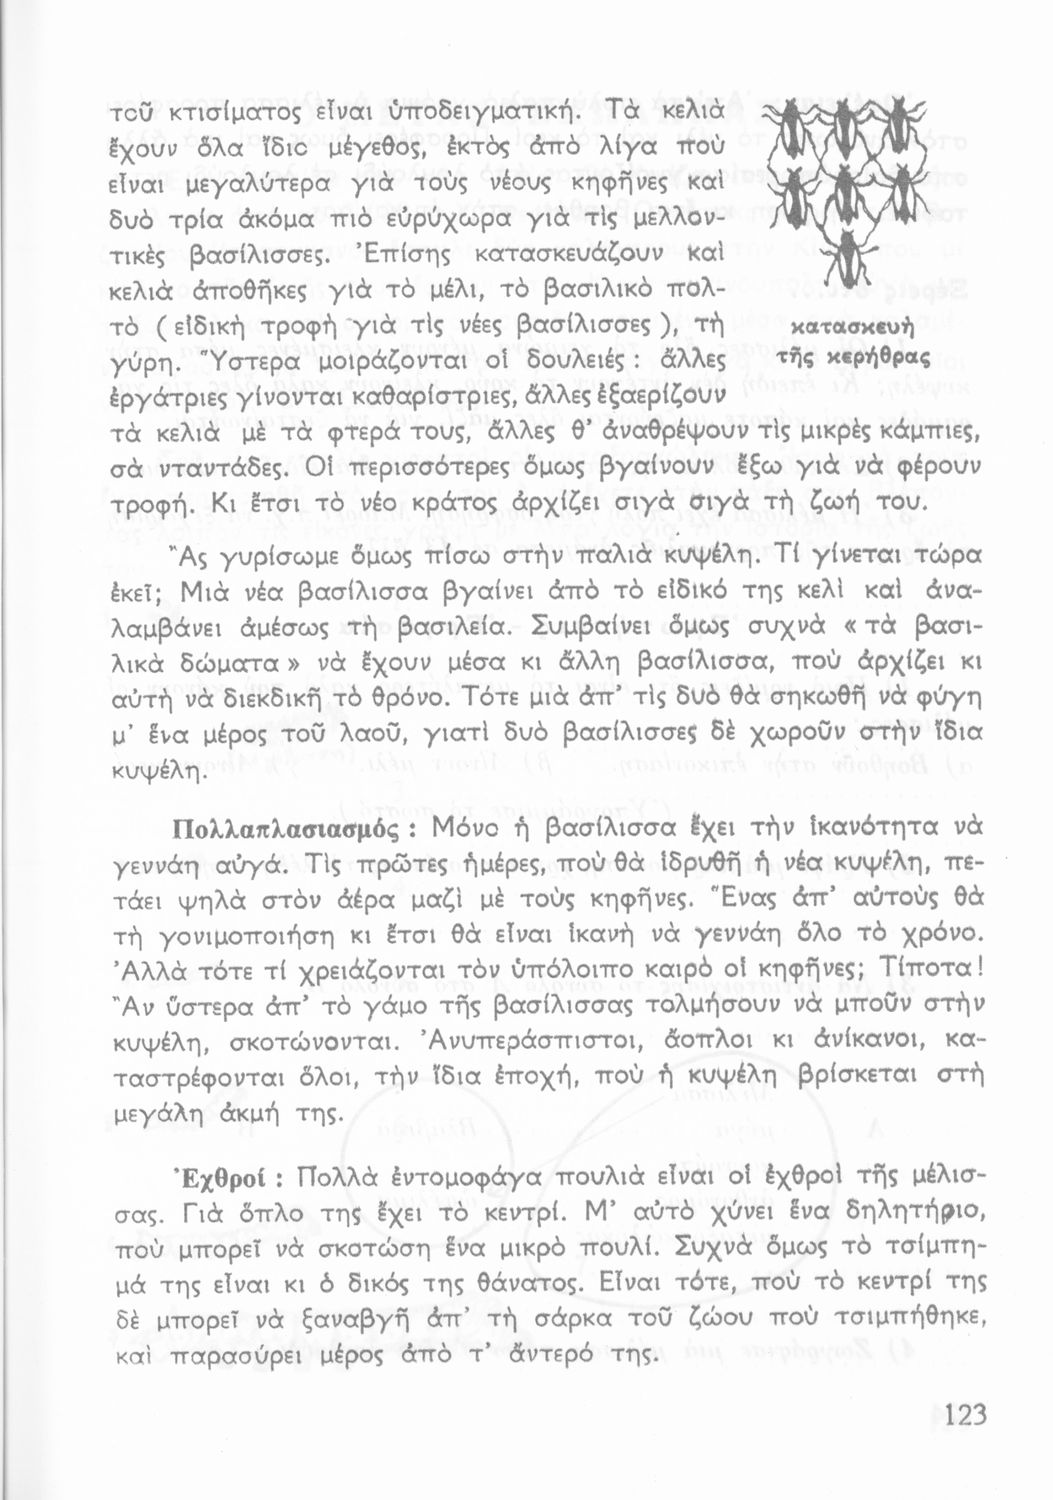 τοῦ κτισίματος εἶναι ὑποδειγματική. Τὰ κελιὰ
ἔχουν ὅλα ἴδιο μέγεθος, ἐκτὸς ἀπὸ λίγα ποὺ
εἶναι μεγαλύτερα γιὰ τοὺς νέους κηφῆνες καὶ
δυὸ τρία ἀκόμα πιὸ εὐρύχωρα γιὰ τὶς μελλον-
τικὲς βασίλισσες. Ἐπίσης κατασκευάζουν καὶ
κελιὰ ἀποθῆκες γιὰ τὸ μέλι, τὸ βασιλικὸ πολ-
τὸ ( εἰδικὴ τροφὴ γιὰ τὶς νέες βασίλισσες ), τὴ
γύρη. Ὕστερα μοιράζονται οἱ δουλειές : ἄλλες
ἐργάτριες γίνονται καθαρίστριες, ἄλλες ἐξαερίζουν
κατασκευὴ
τῆς κερήθρας
τὰ κελιὰ μὲ τὰ φτερά τους, ἄλλες θ' ἀναθρέψουν τὶς μικρὲς κάμπιες,
σὰ νταντάδες. Οἱ περισσότερες ὅμως βγαίνουν ἔξω γιὰ νὰ φέρουν
τροφή. Κι ἔτσι τὸ νέο κράτος ἀρχίζει σιγὰ σιγὰ τὴ ζωή του.
Ἂς γυρίσωμε ὅμως πίσω στὴν παλιὰ κυψέλη. Τί γίνεται τώρα
ἐκεῖ; Μιὰ νέα βασίλισσα βγαίνει ἀπὸ τὸ εἰδικό της κελὶ καὶ ἀνα-
λαμβάνει ἀμέσως τὴ βασιλεία. Συμβαίνει ὅμως συχνὰ « τὰ βασι-
λικὰ δώματα » νὰ ἔχουν μέσα κι ἄλλη βασίλισσα, ποὺ ἀρχίζει κι
αὐτὴ νὰ διεκδικῆ τὸ θρόνο. Τότε μιὰ ἀπ' τὶς δυὸ θὰ σηκωθῆ νὰ φύγη
μ' ἕνα μέρος τοῦ λαοῦ, γιατὶ δυὸ βασίλισσες δὲ χωροῦν στὴν ἴδια
κυψέλη.
Πολλαπλασιασμός : Μόνο ἡ βασίλισσα ἔχει τὴν ἱκανότητα νὰ
γεννάη αὐγά. Τὶς πρῶτες ἡμέρες, ποὺ θὰ ἱδρυθῆ ἡ νέα κυψέλη, πε-
τάει ψηλὰ στὸν ἀέρα μαζὶ μὲ τοὺς κηφῆνες. Ἕνας ἀπ' αὐτοὺς θὰ
τὴ γονιμοποιήση κι ἔτσι θὰ εἶναι ἱκανὴ νὰ γεννάη ὅλο τὸ χρόνο.
Ἀλλὰ τότε τί χρειάζονται τὸν ὑπόλοιπο καιρὸ οἱ κηφῆνες; Τίποτα!
Ἂν ὕστερα ἀπ' τὸ γάμο τῆς βασίλισσας τολμήσουν νὰ μποῦν στὴν
κυψέλη, σκοτώνονται. Ἀνυπεράσπιστοι, ἄοπλοι κι ἀνίκανοι, κα-
ταστρέφονται ὅλοι, τὴν ἴδια ἐποχή, ποὺ ἡ κυψέλη βρίσκεται στὴ
μεγάλη ἀκμή της.
Ἐχθροί : Πολλὰ ἐντομοφάγα πουλιὰ εἶναι οἱ ἐχθροὶ τῆς μέλισ-
σας. Γιὰ ὅπλο της ἔχει τὸ κεντρί. Μ' αὐτὸ χύνει ἕνα δηλητήριο,
ποὺ μπορεῖ νὰ σκοτώση ἕνα μικρὸ πουλί. Συχνὰ ὅμως τὸ τσίμπη-
μά της εἶναι κι ὁ δικός της θάνατος. Εἶναι τότε, ποὺ τὸ κεντρί της
δὲ μπορεῖ νὰ ξαναβγῆ ἀπ' τὴ σάρκα τοῦ ζώου ποὺ τσιμπήθηκε,
καὶ παρασύρει μέρος ἀπὸ τ' ἄντερό της.
123